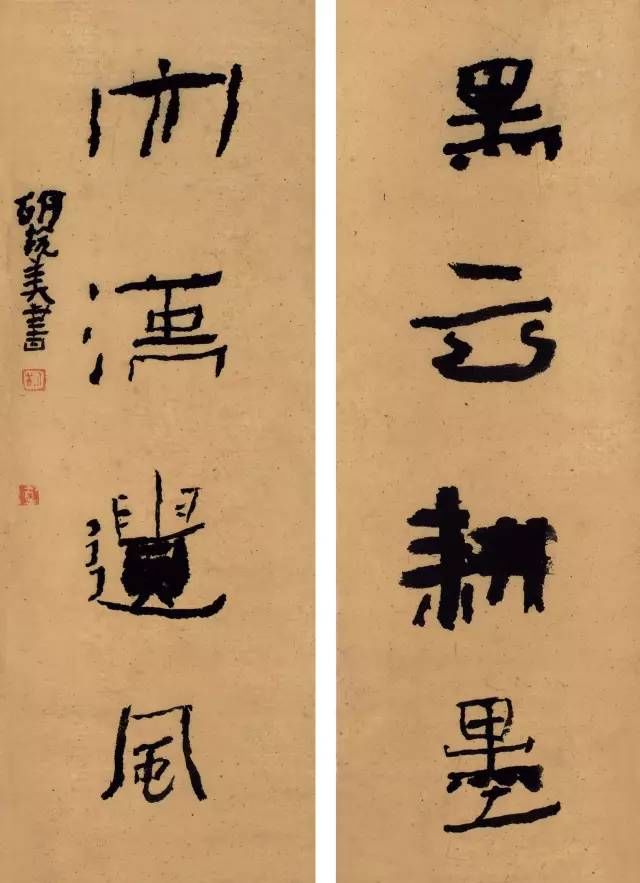 黑云耕墨
大漢遺風
胡抗美書